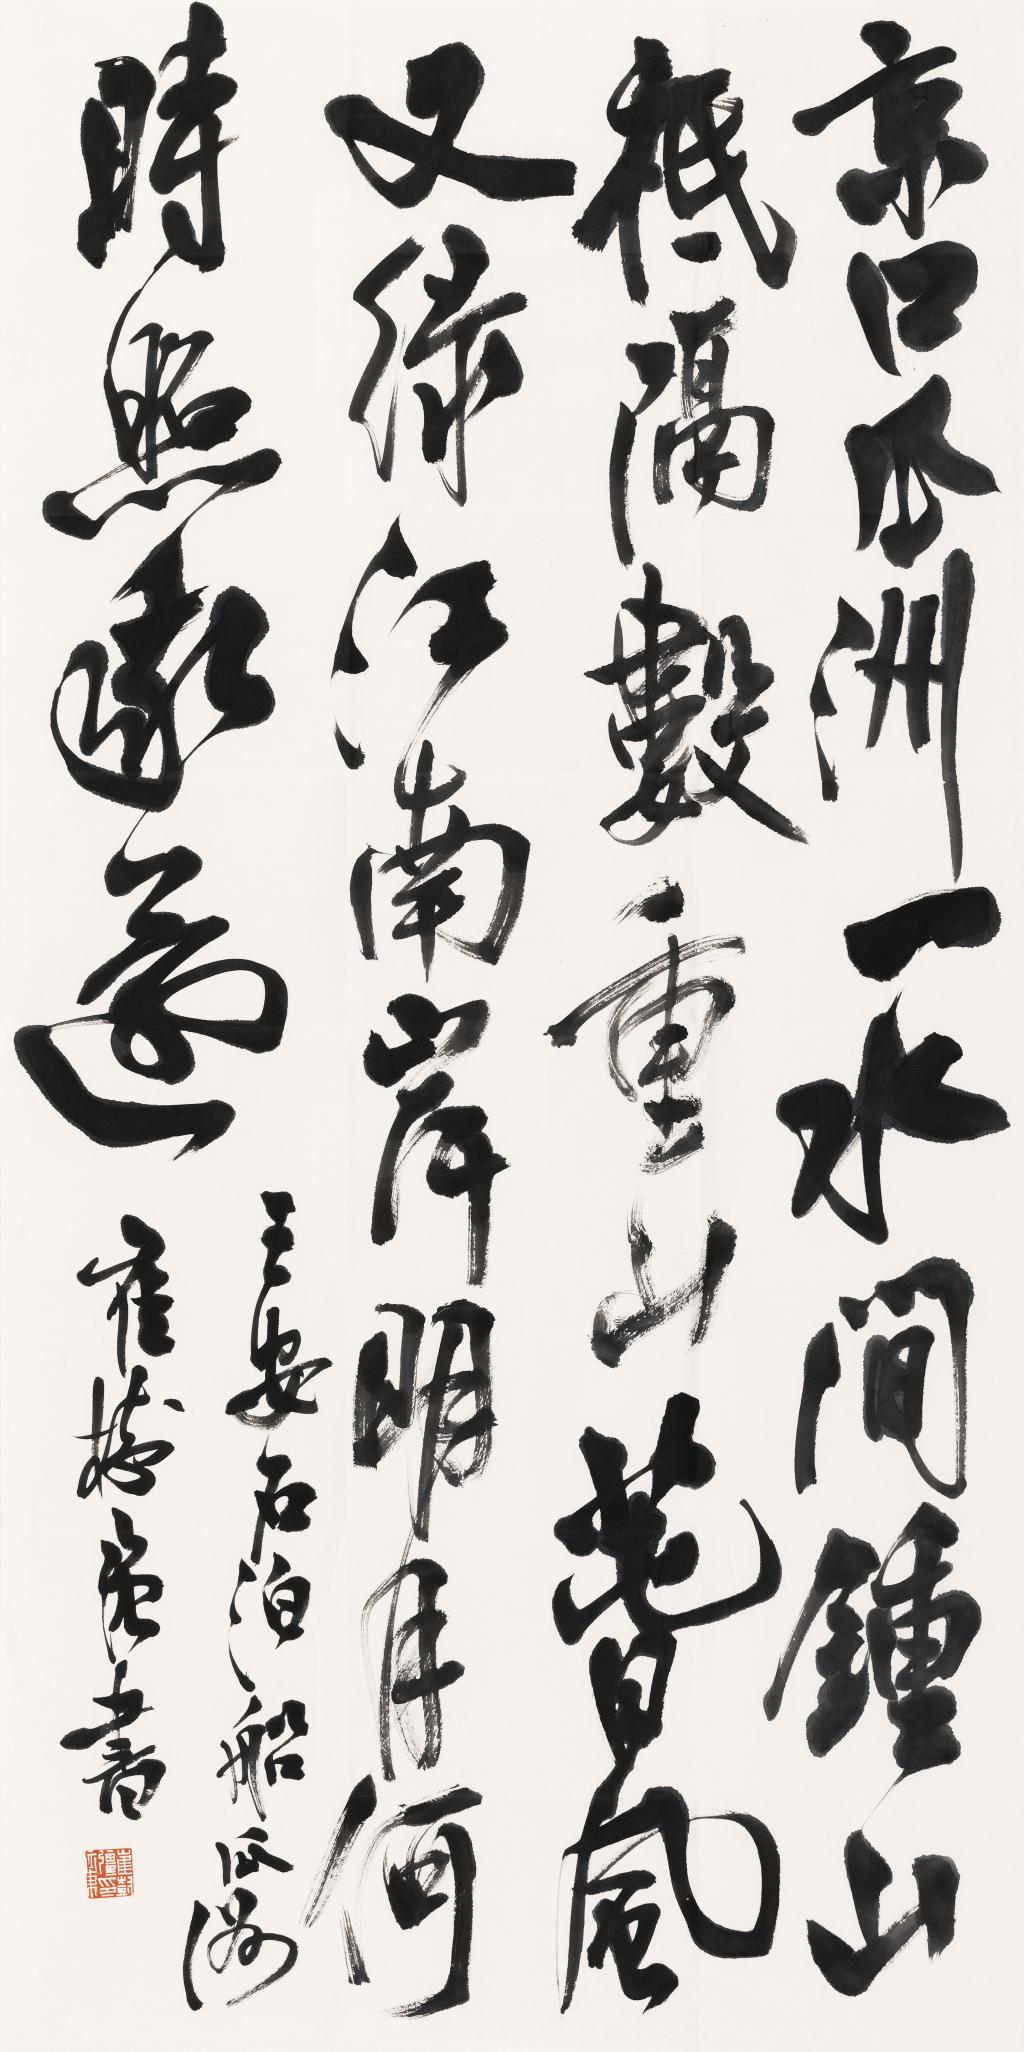 京口瓜洲一水間鍾山
祗隔數重山萅風
又緑江南岸明月何
時照我還
王安石泊船瓜洲
崔樹強書